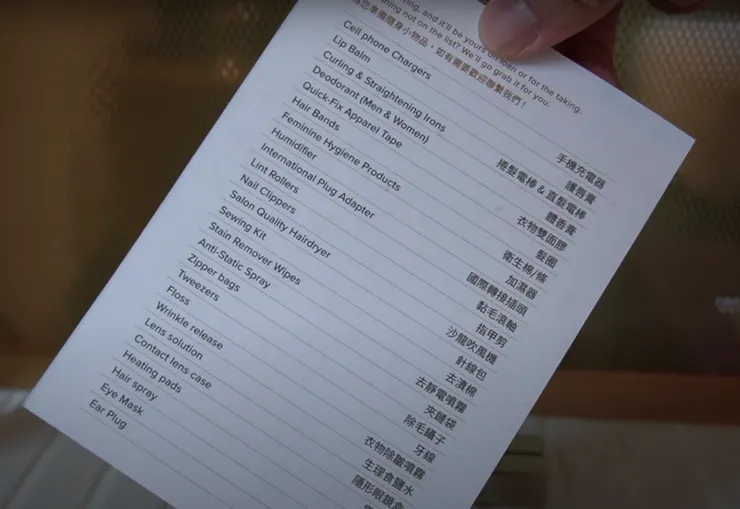 and it'll be yours on loan or for the taking.
not on the list? We'll go grab it for you.
您準備隨身小物品，如有需要歡迎聯繫我們！
Cell phone Chargers 手機充電器
Lip Balm 護唇膏
Curling & Straightening Irons 捲髮電棒 & 直髮電棒
Deodorant (Men & Women) 體香膏
Quick-Fix Apparel Tape 衣物雙面膠
Hair Bands 髮圈
Feminine Hygiene Products 衛生棉/條
Humidifier 加濕器
International Plug Adapter 國際轉接插頭
Lint Rollers 黏毛滾軸
Nail Clippers 指甲剪
Salon Quality Hairdryer 沙龍吹風機
Sewing Kit 針線包
Stain Remover Wipes 去漬棉
Anti-Static Spray 去靜電噴霧
Zipper bags 夾鏈袋
Tweezers 除毛鑷子
Floss 牙線
Wrinkle release 衣物除皺噴霧
Lens solution 生理食鹽水
Contact lens case 隱形眼鏡盒
Heating pads
Hair spray
Eye Mask
Ear Plug